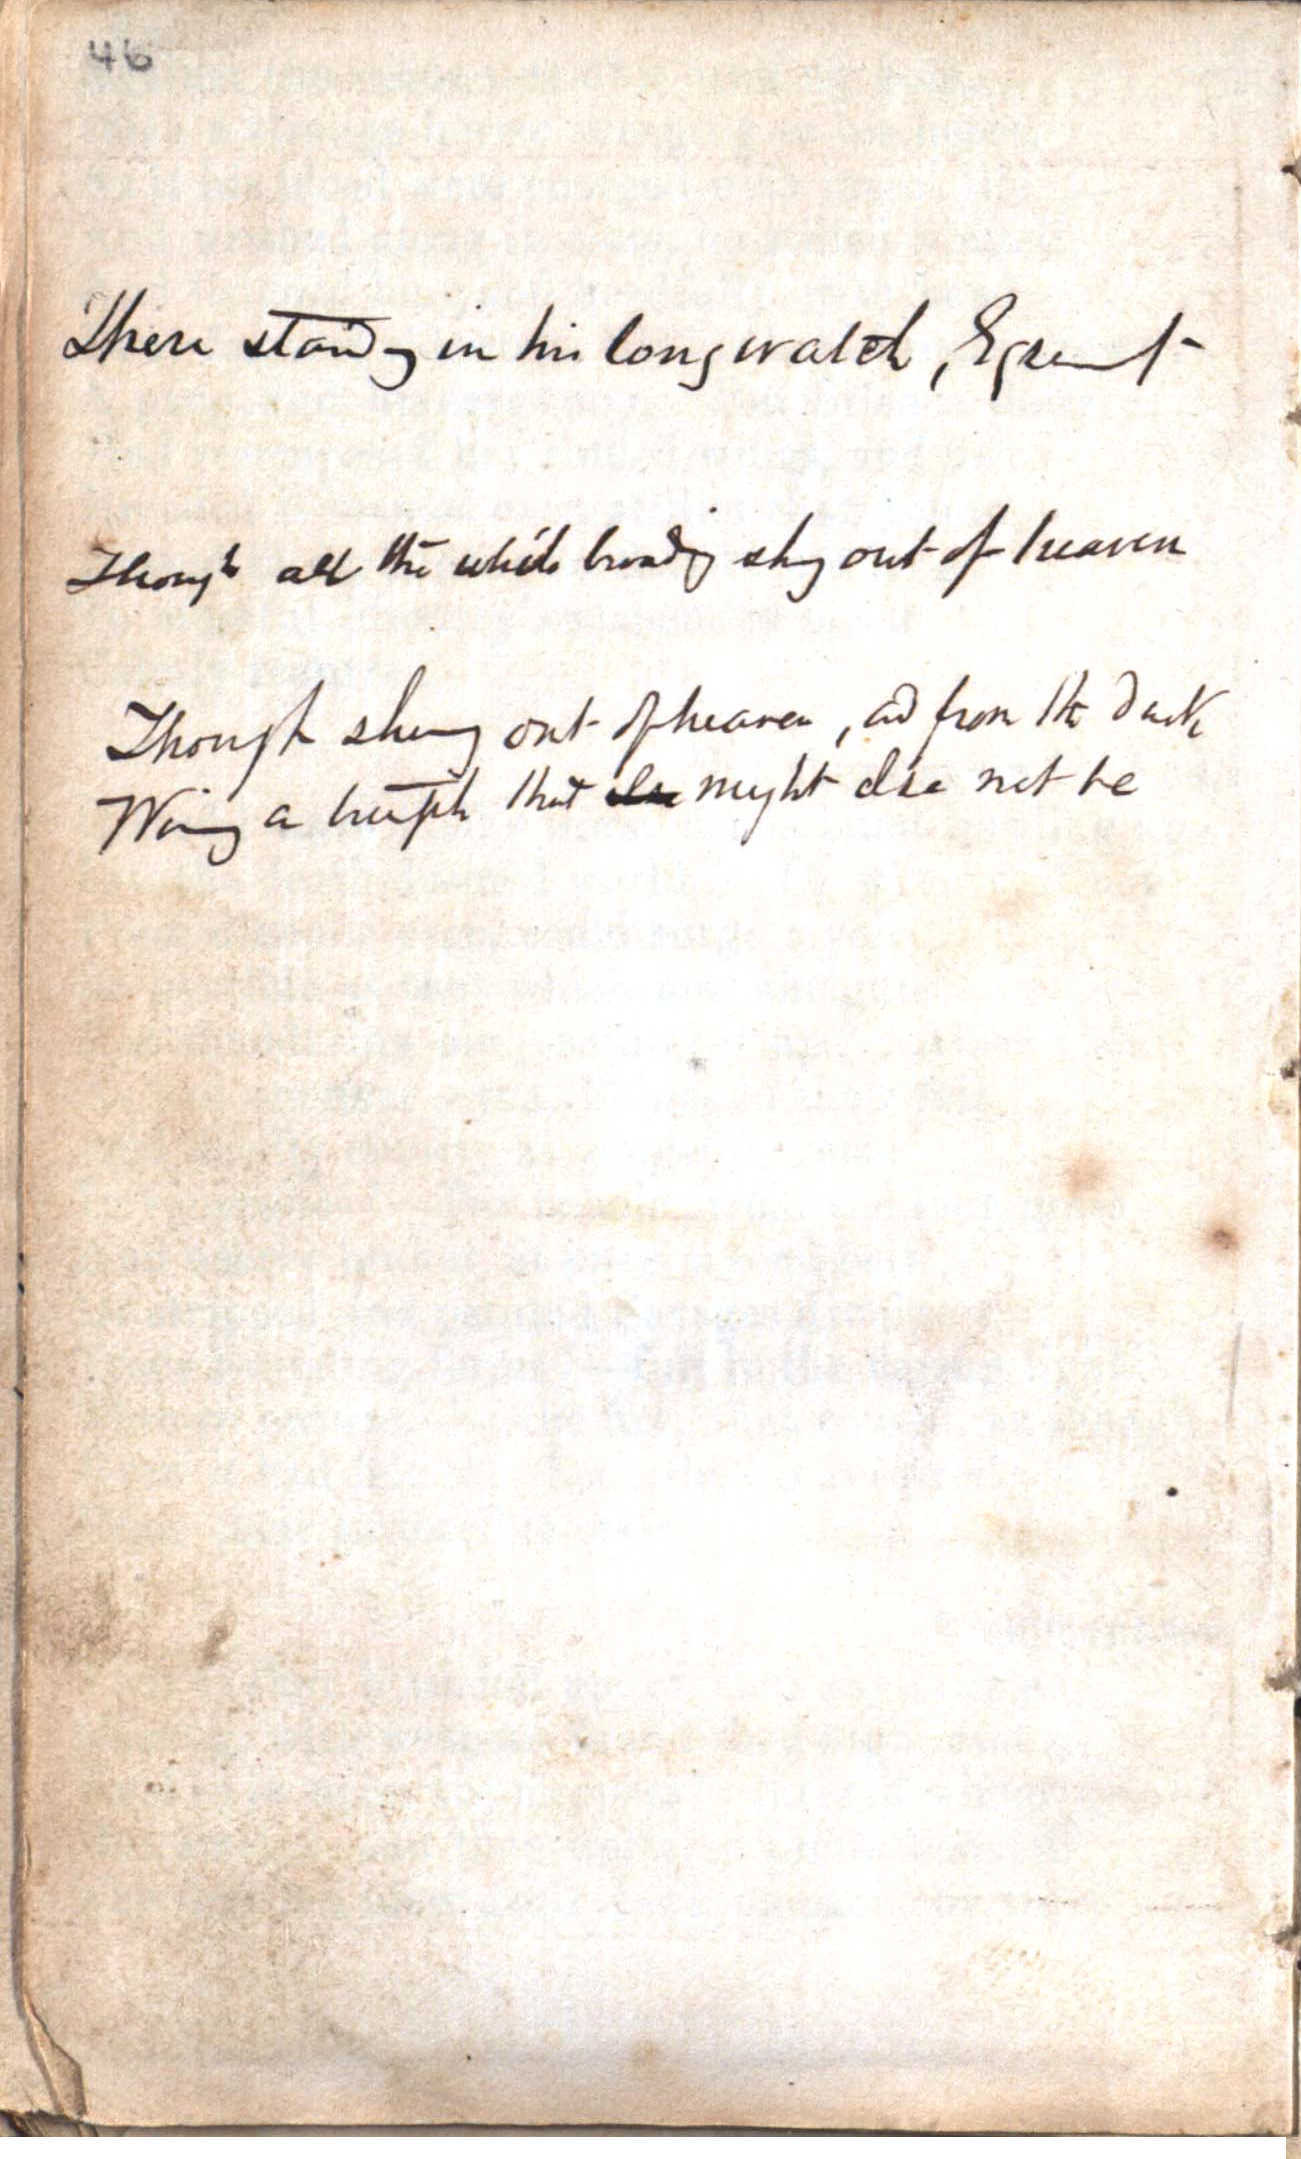 46
There standg in his long watch, Egremont
Though all the while broadg shg out of heaven
Though shing out of heaven, and from the dark
Wing a triumph that else might else not be